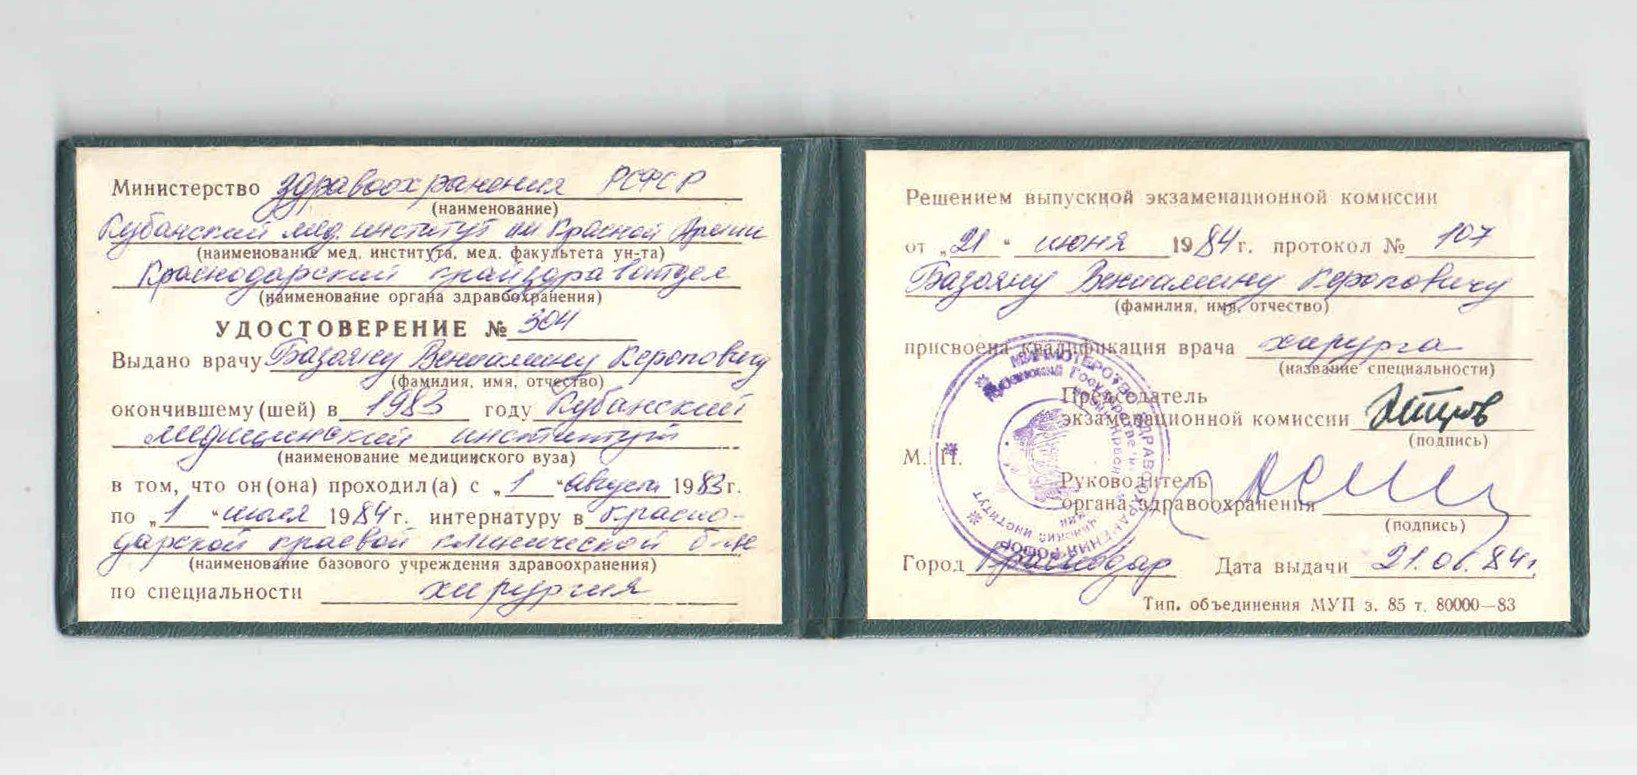 Министерство здравоохранения РСФСР
(наименование)
Кубанский мед. институт им Красной Армии
(наименование мед. института, мед. факультета ун-та)
Краснодарский крайздравотдел
(наименование органа здравоохранения)
УДОСТОВЕРЕНИЕ № 304
Выдано врачу Базояну Вениамину Кероповичу
(фамилия, имя, отчество)
окончившему(шей) в 1983 году Кубанский
медицинский институт
(наименование медицинского вуза)
в том, что он(она) проходил(а) с „1" августа 1983г.
по „1" июля 1984г. интернатуру в Красно-
дарской краевой клинической б-це
(наименование базового учреждения здравоохранения)
по специальности хирургия
Решением выпускной экзаменационной комиссии
от „21" июня 1984г. протокол № 107
Базояну Вениамину Кероповичу
(фамилия, имя, отчество)
присвоена квалификация врача хирурга
(название специальности)
Председатель
экзаменационной комиссии
(подпись)
М. П.
Руководитель
органа здравоохранения
(подпись)
Город Краснодар Дата выдачи 21.06.84г.
Тип. объединения МУП з. 85 т. 80000—83